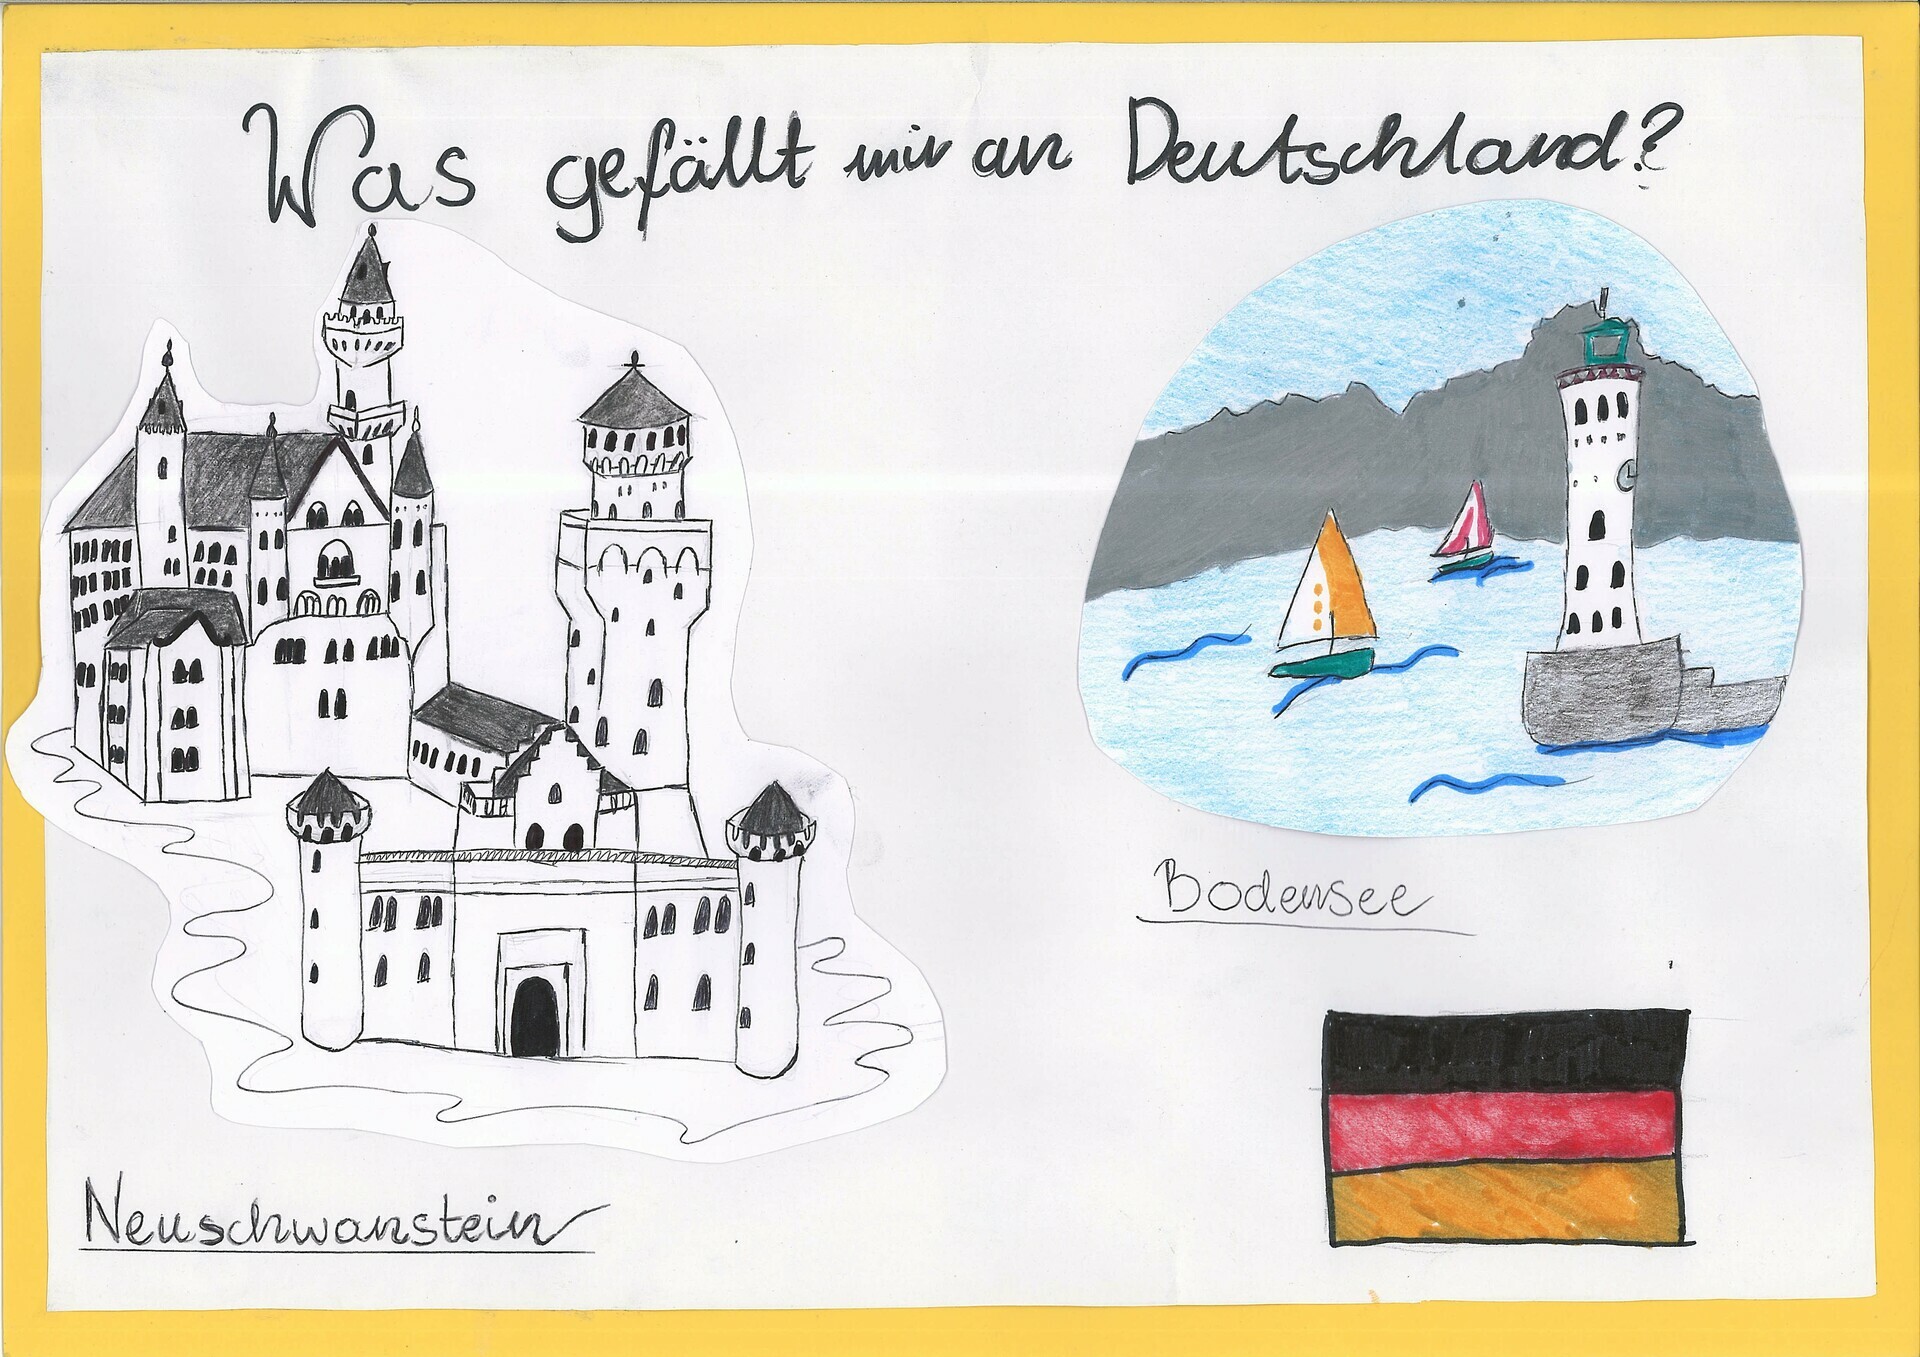 Was gefällt mir an Deutschland?
Bodensee
Neuschwanstein